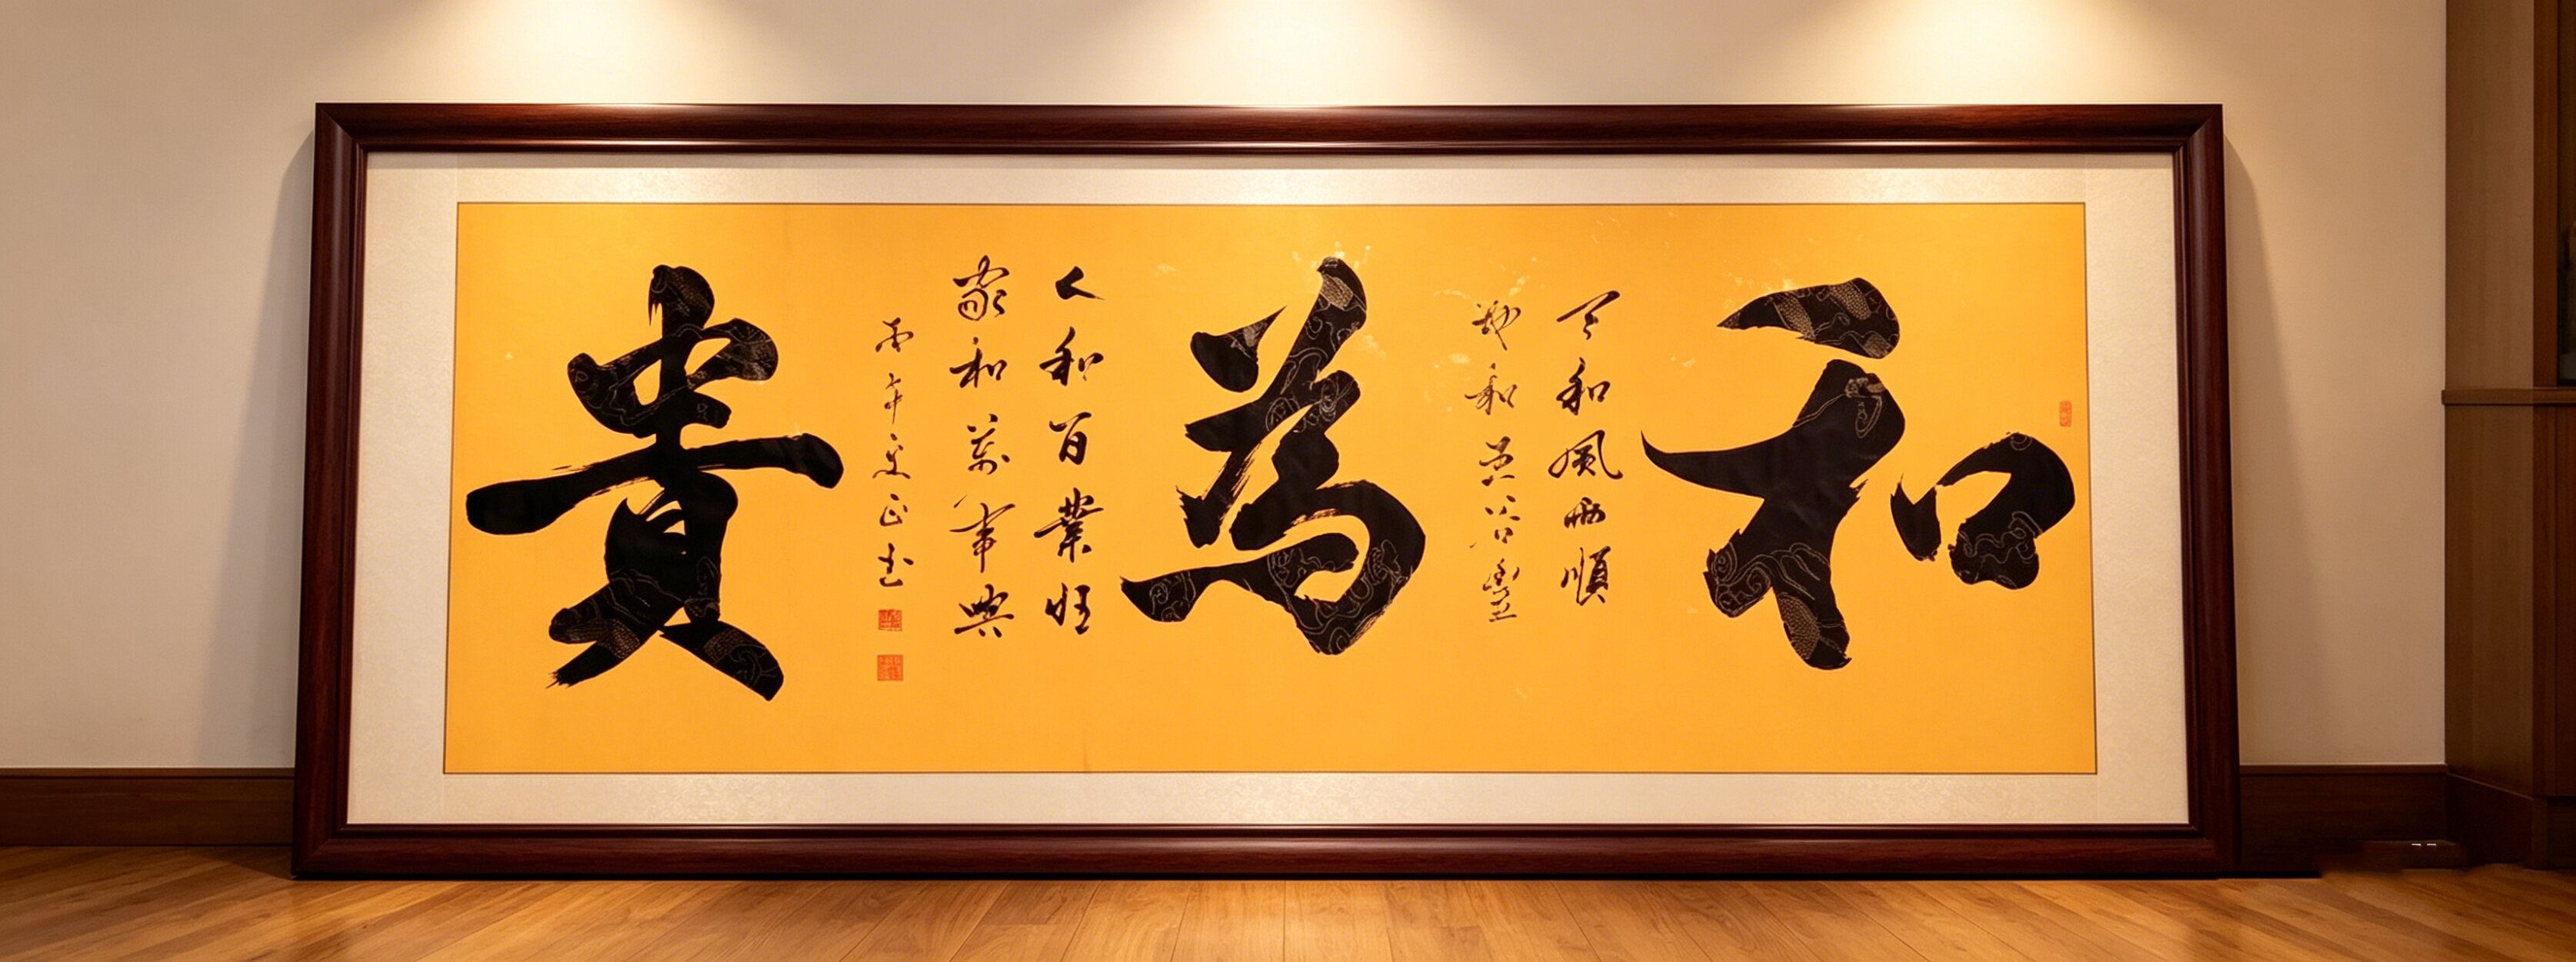 和為貴
天和風雨順
地和五谷豐
人和百業旺
家和萬事興
丙午正书